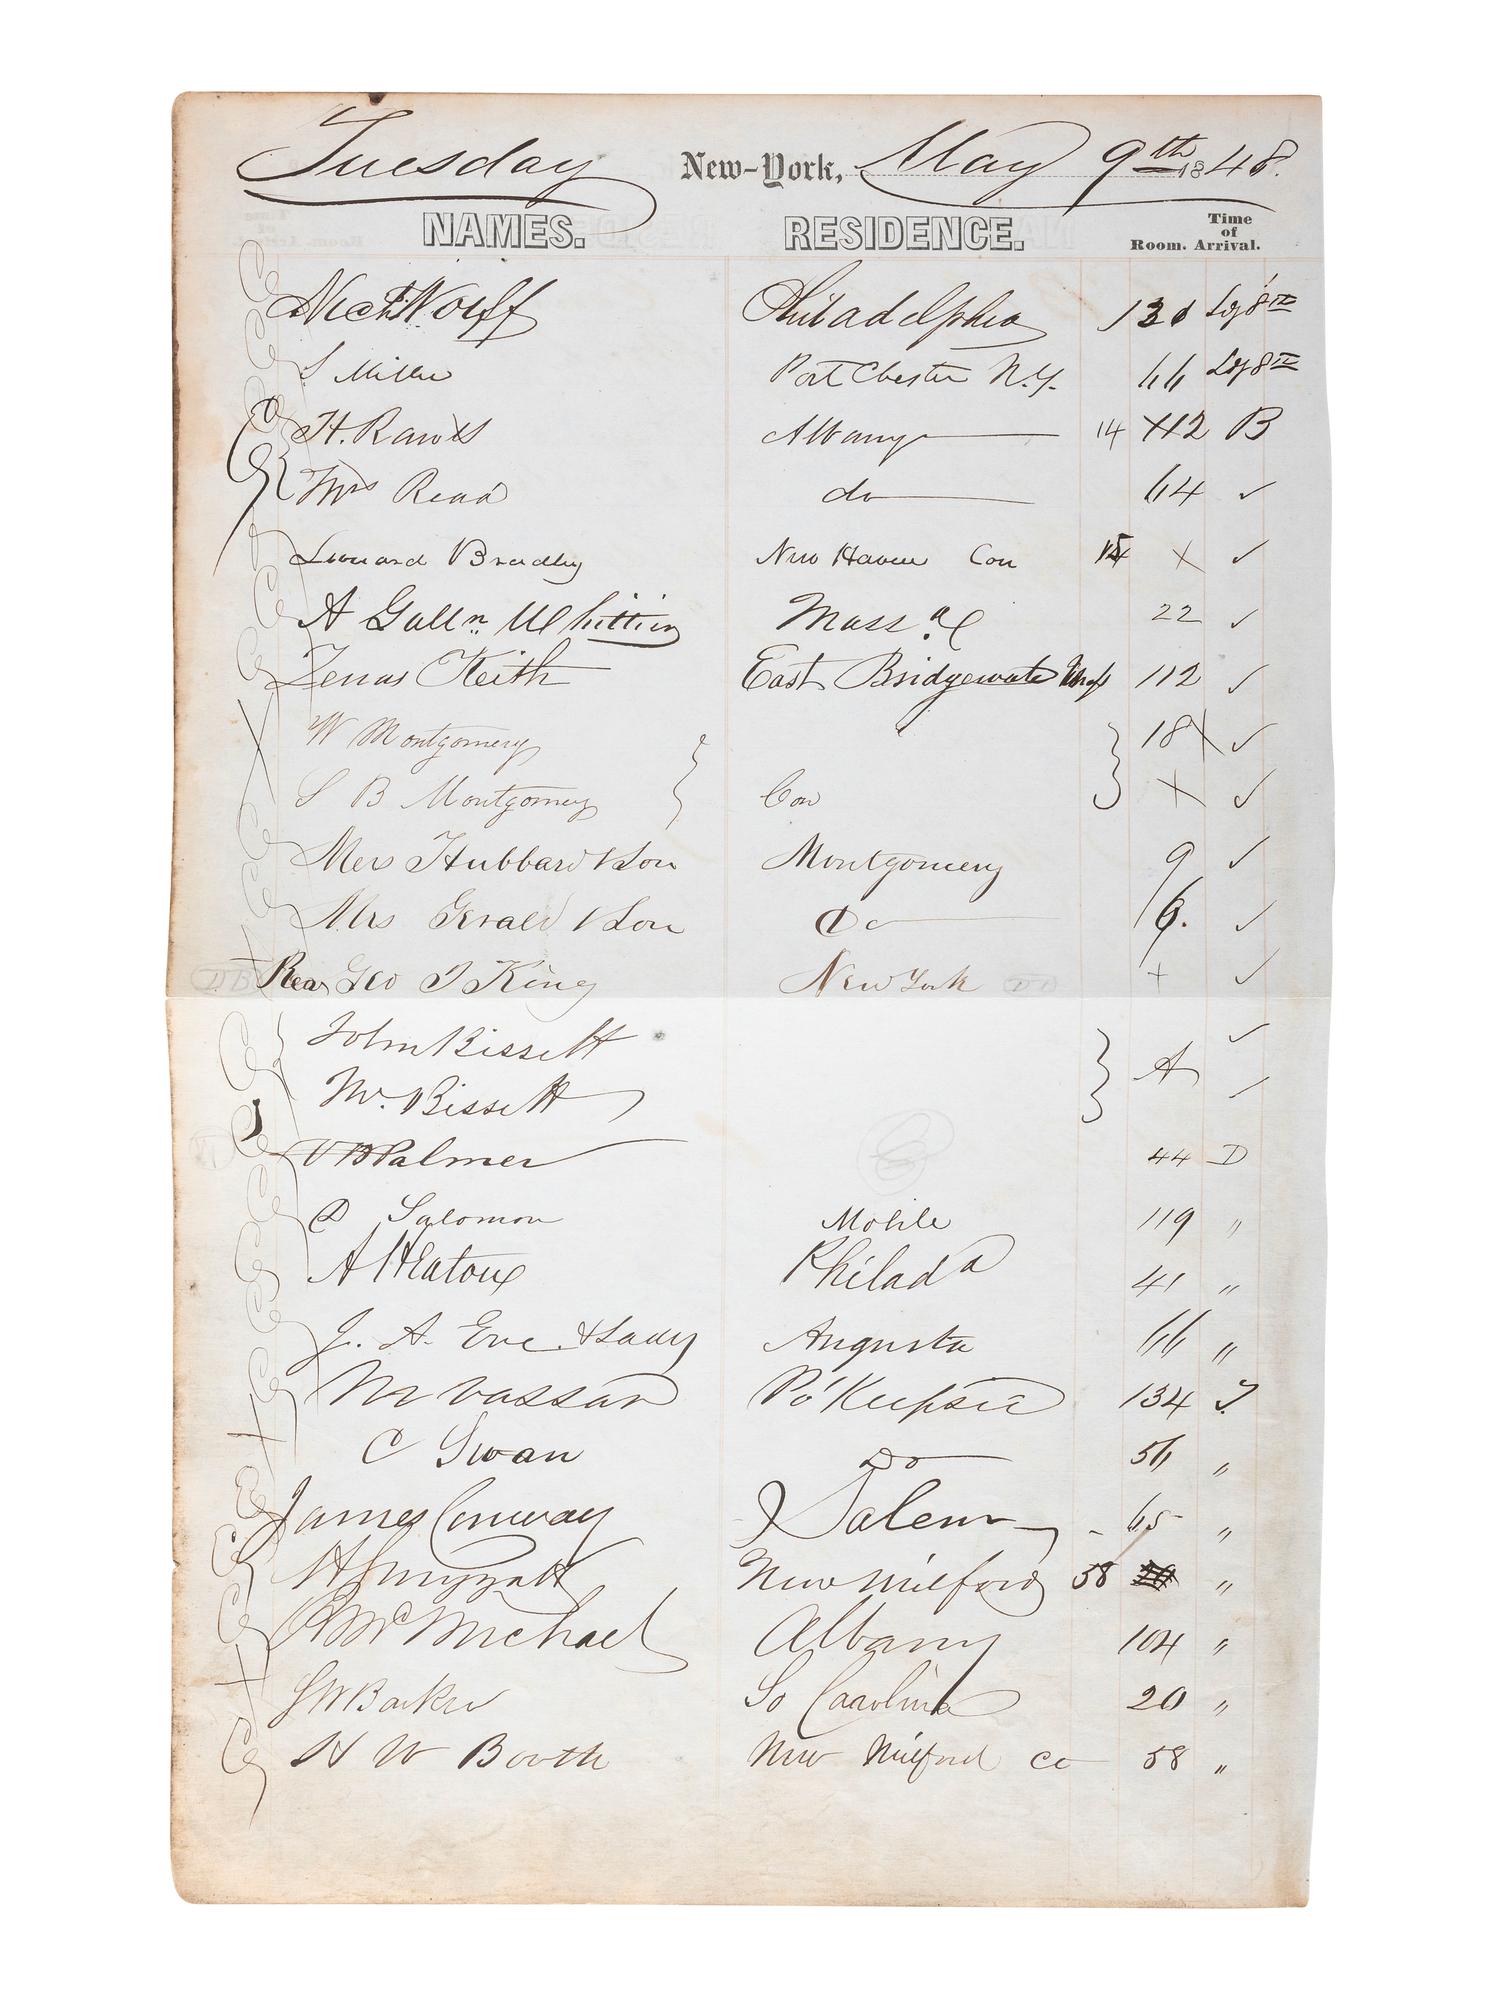 Tuesday New-York, May 9th 1848.
NAMES. RESIDENCE. Room. Time of Arrival.
Philadelphia
S Miller Port Chester N.Y. 66
H. Rawls Albany 14 112 B
Mrs Read do 64 ✓
Leonard Bradley New Haven Con X ✓
A Galln Whittier Mass 22 ✓
Zenas Keith East Bridgewater Mass 112 ✓
W Montgomery 18 X ✓
S B Montgomery Con X ✓
Mrs Hubbard & Son Montgomery 9 ✓
Mrs Gerald & Son Do ✓
Rev Geo I King New York + ✓
John Bissett A ✓
W. Bissett ✓
V B Palmer 44 D
D Salomon Mobile 119 "
A H Eaton Philada 41 "
J. A. Eve & Lady Augusta 66 "
M Vassar Po'Keepsie 134 T.
C Swan Do 56 "
James Conway Salem 65 "
New Milford 58 "
McMichael Albany 104 "
J W Barker So Carolina 20 "
H W Booth New Milford Ct 58 "